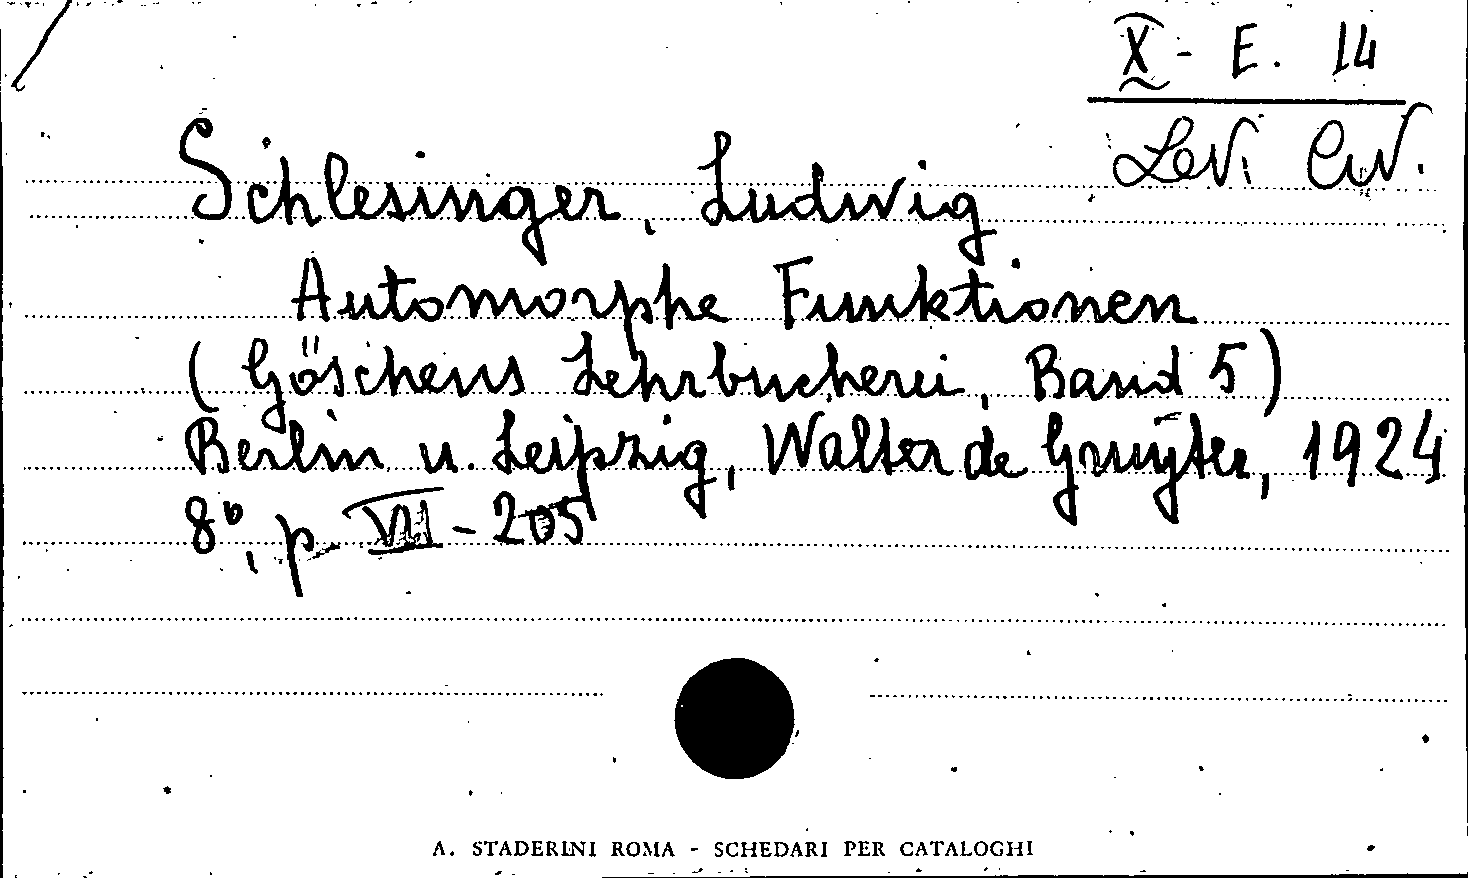 X - E. 14
Levi Civ.
Schlesinger, Ludwig
Automorphe Funktionen
(Göschens Lehrbucherei, Band 5)
Berlin u. Leipzig, Walter de Gruyter, 1924
8°, p. VII - 205
A. STADERINI ROMA - SCHEDARI PER CATALOGHI